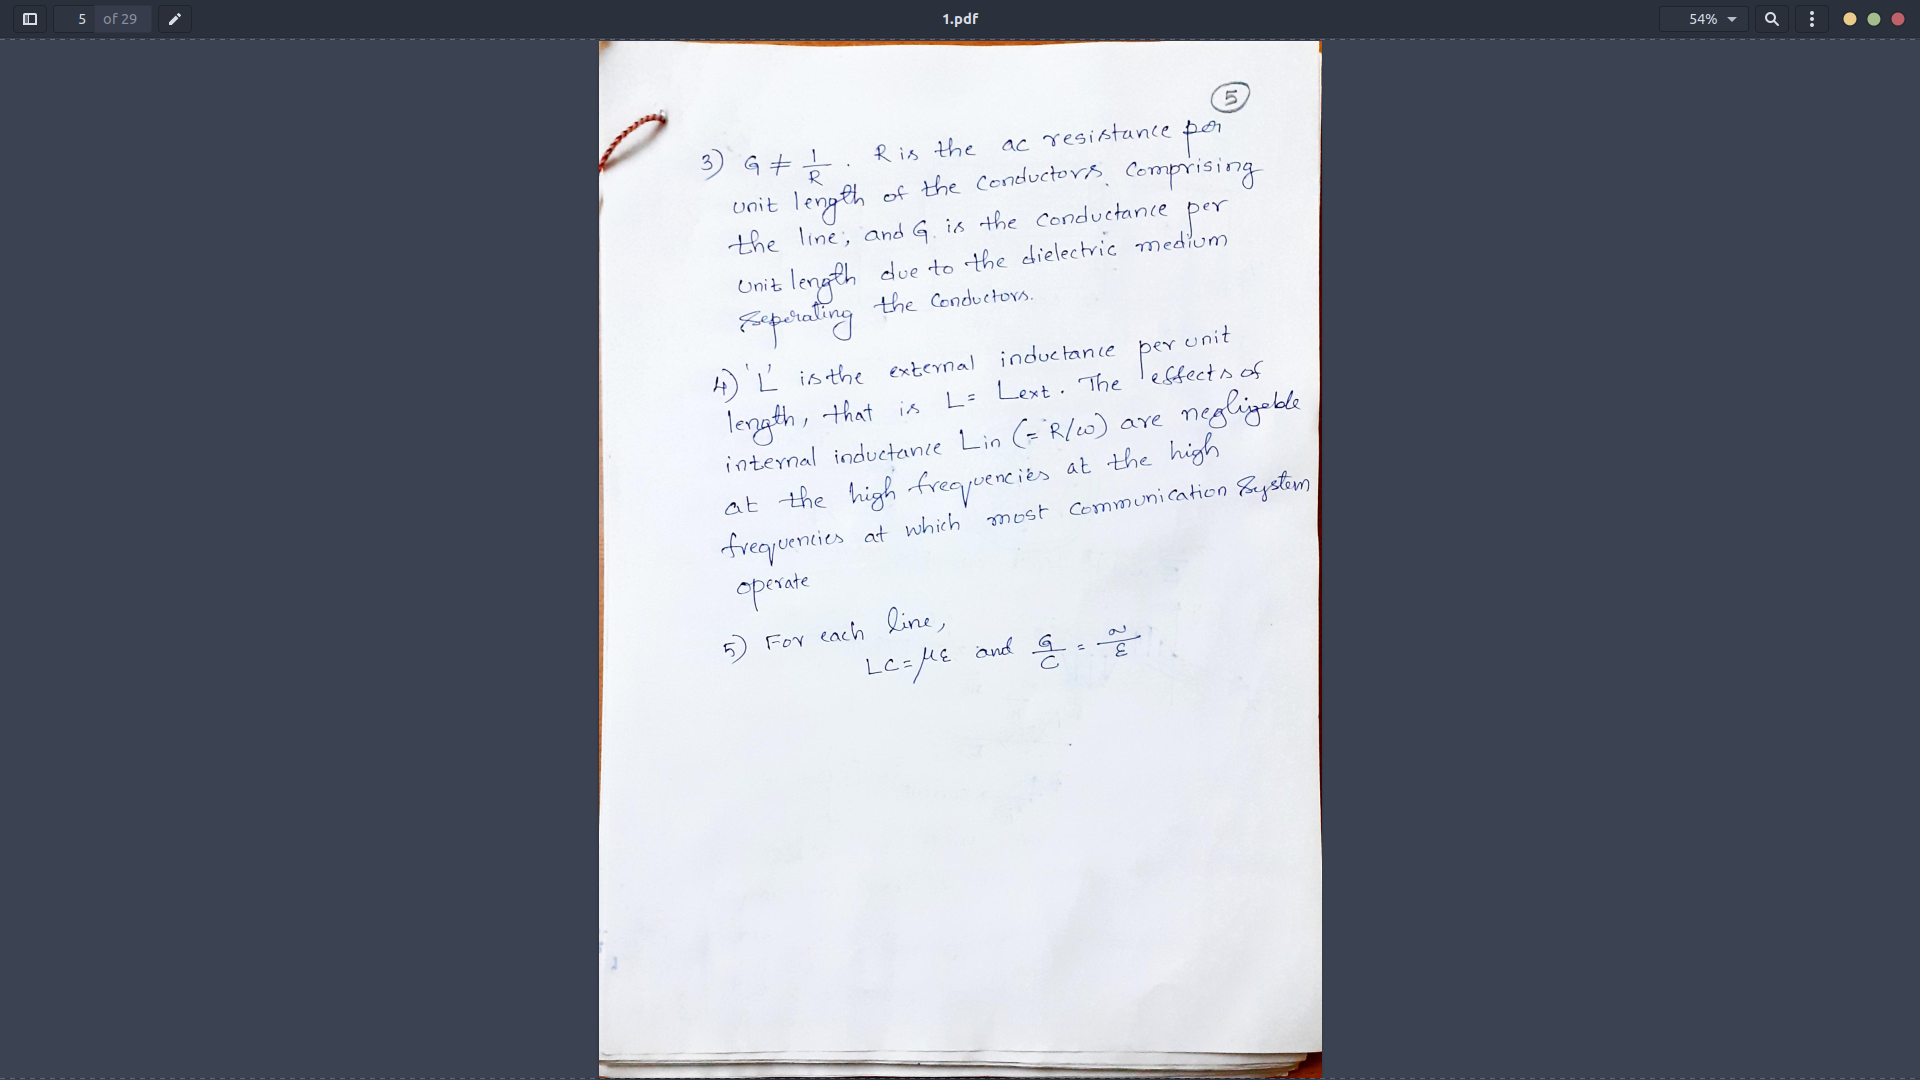 5 of 29
1.pdf
54%
5
3) G ≠ 1/R . R is the ac resistance per
unit length of the conductors comprising
the line, and G. is the conductance per
unit length due to the dielectric medium
seperating the conductors.
4) 'L' is the external inductance per unit
length, that is L = Lext . The effects of
internal inductance Lin (= R/ω) are negligeble
at the high frequencies at the high
frequencies at which most communication system
operate
5) For each line,
LC = με and G/C = σ/ε